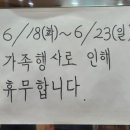 6/18(화)~6/23(일)
가족행사로 인해
휴무합니다.